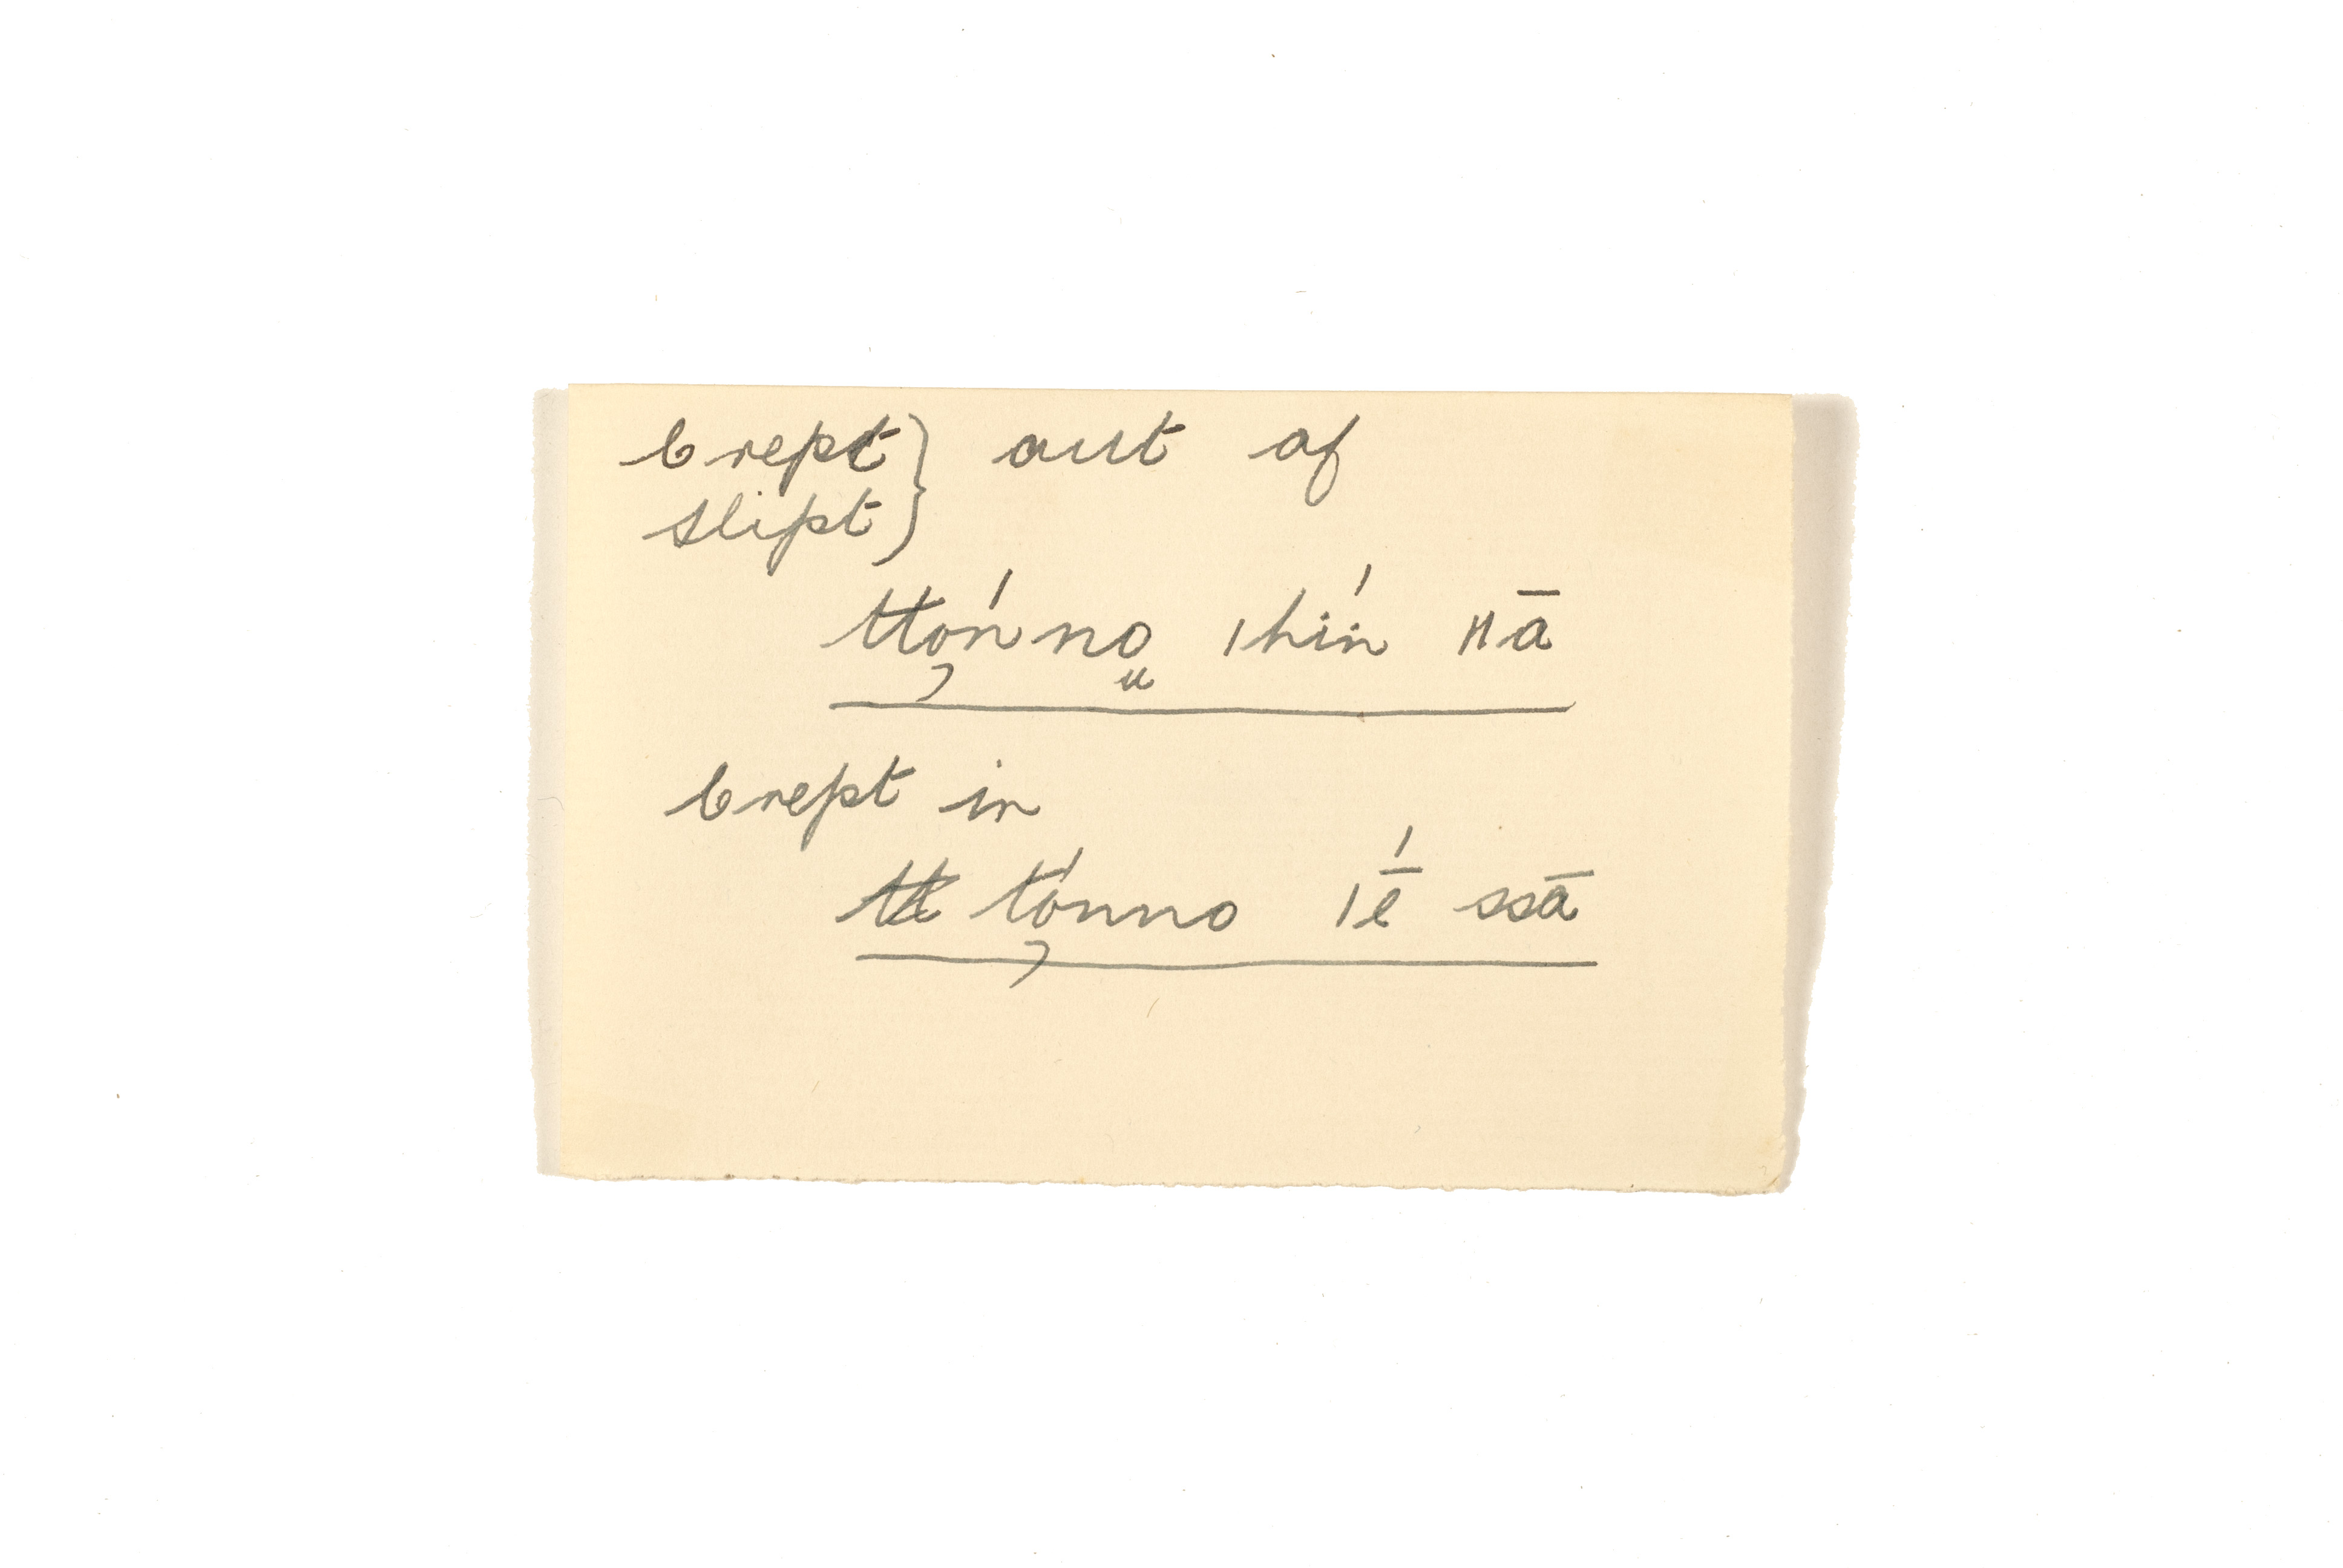 Crept } out of
slipt }
ttón̓no̤ ǀhín ǁā
Crept in
tt tónno ǀḗ ssā